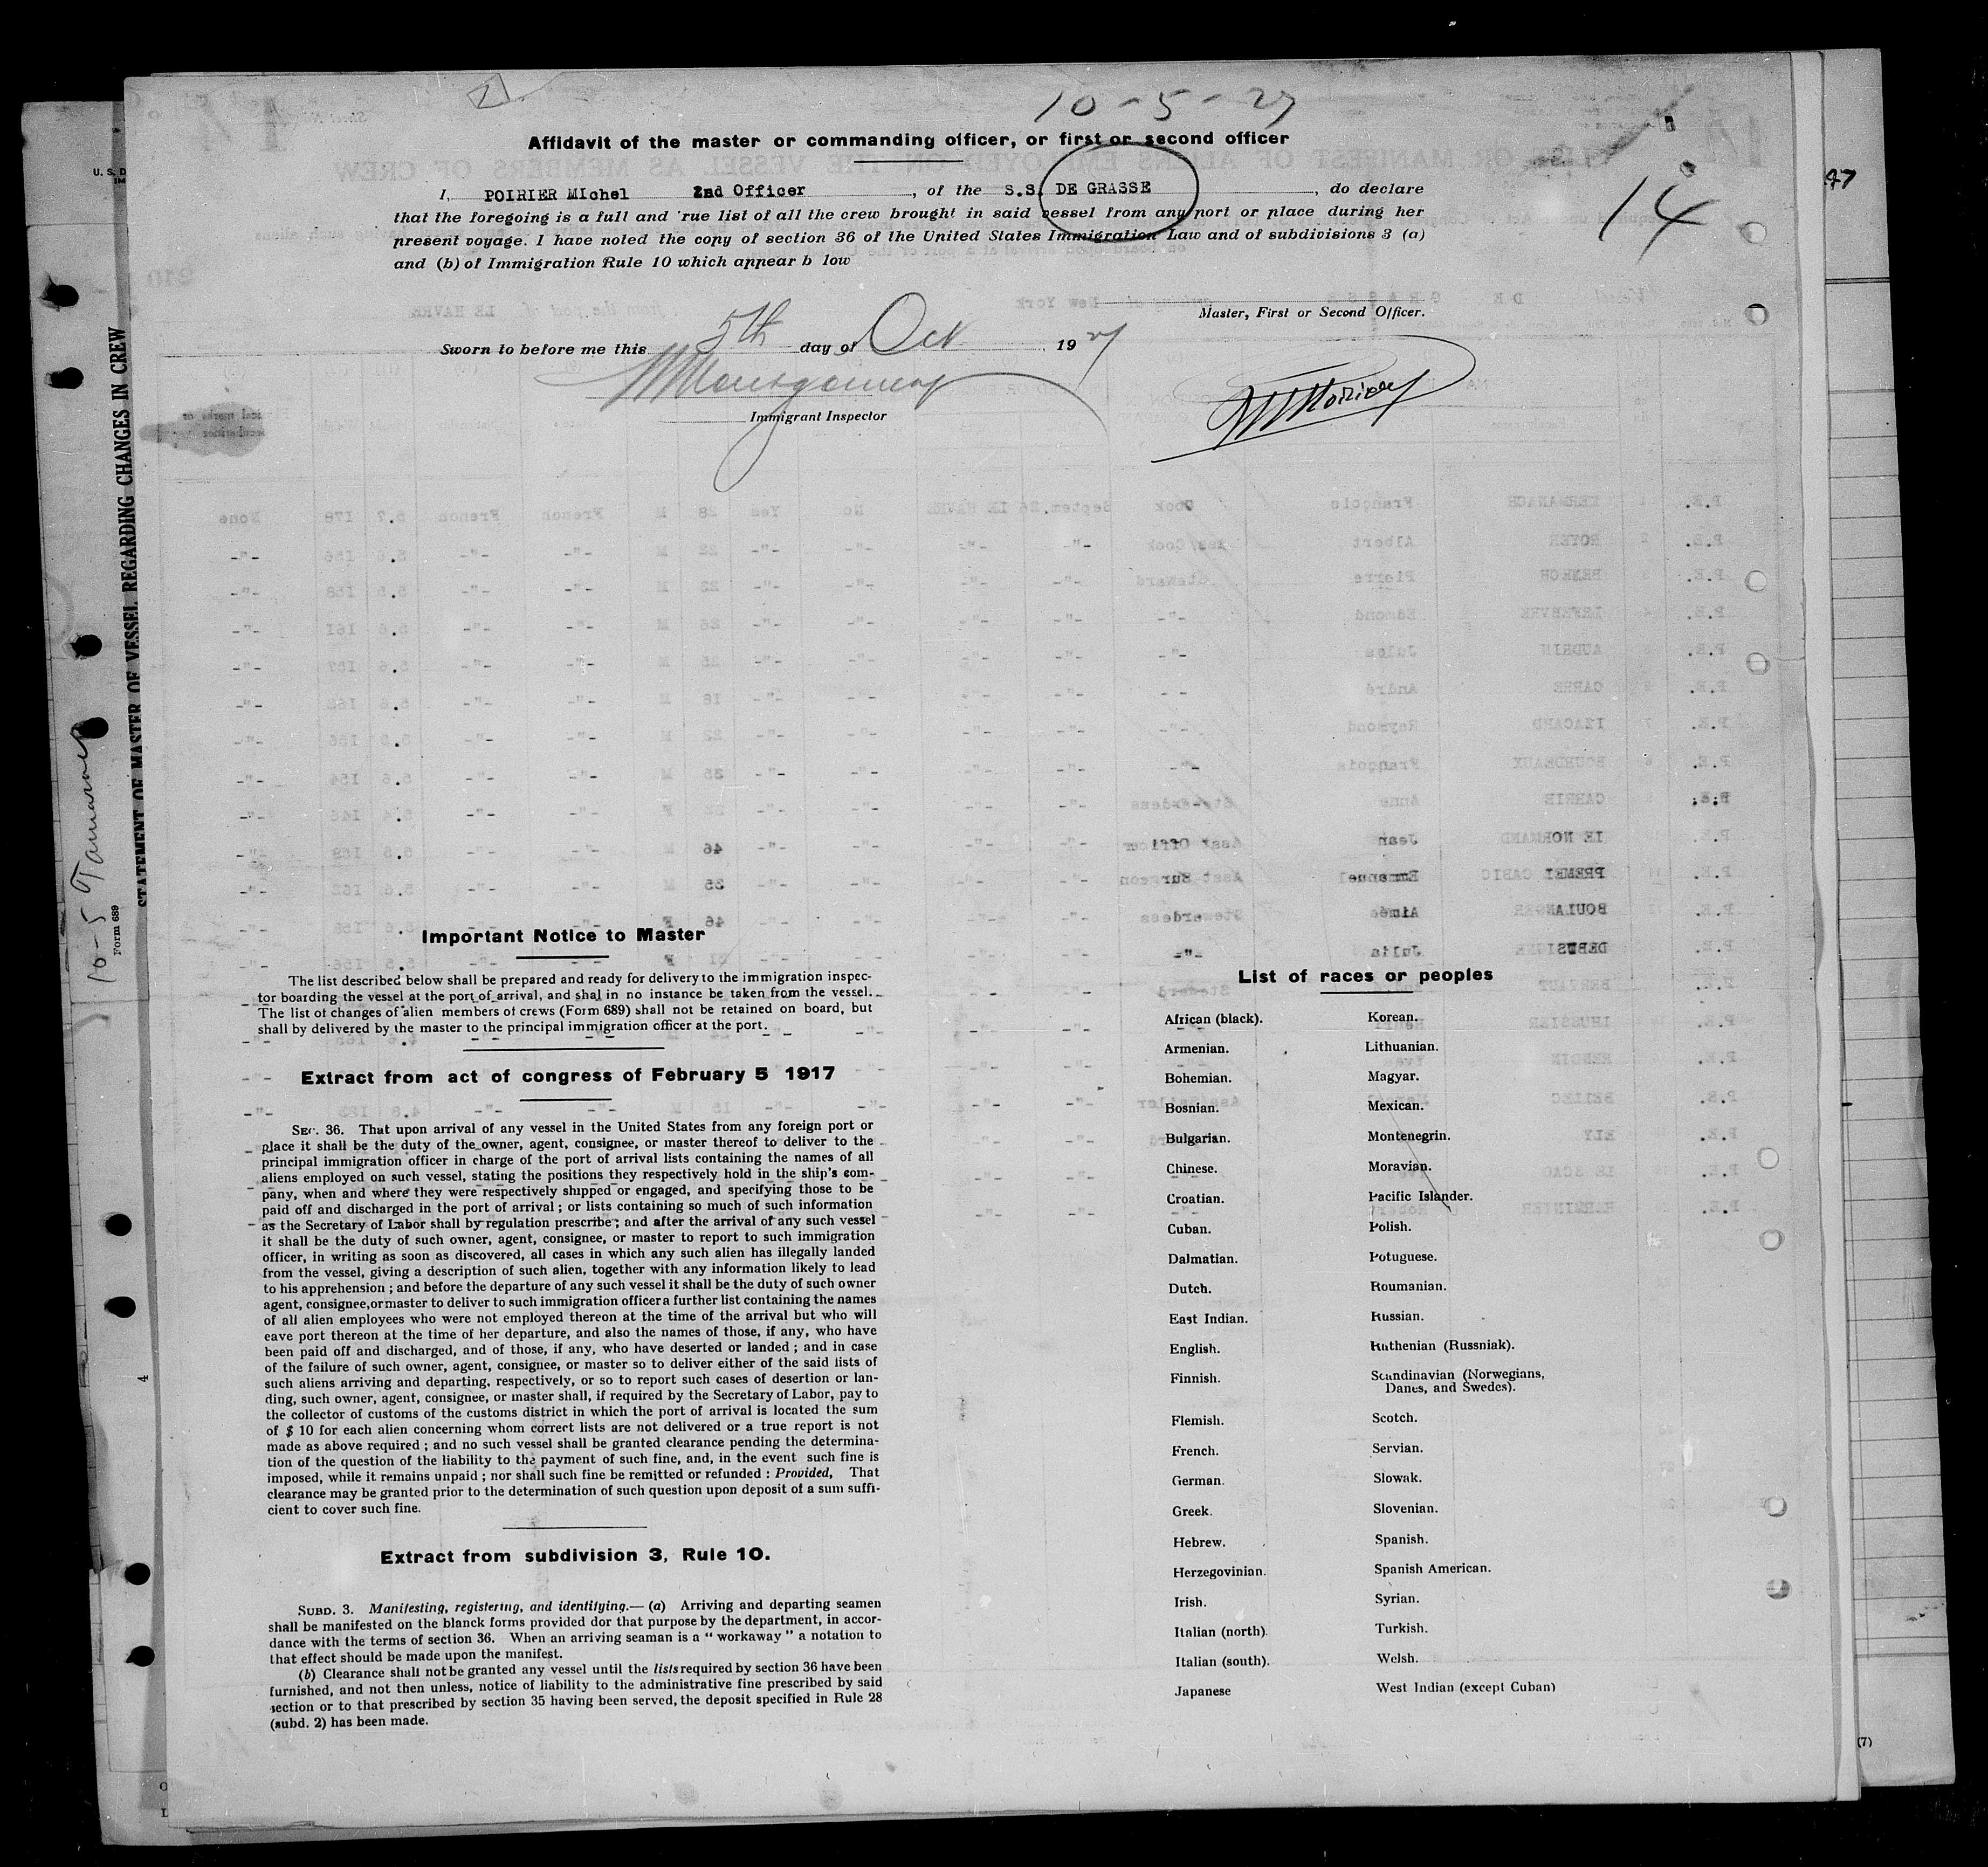 10-5-27
Affidavit of the master or commanding officer, or first or second officer
I, POIRIER MIchel 2nd Officer, of the S.S. DE GRASSE, do declare
that the foregoing is a full and 'rue list of all the crew brought in said vessel from any port or place during her
present voyage. I have noted the copy of section 36 of the United States Immigration Law and of subdivisions 3 (a)
and (b) of Immigration Rule 10 which appear b low
14
47
Master, First or Second Officer.
Sworn to before me this 5th day of Oct 1927
Montgomery
Immigrant Inspector
U. S. D
IM
STATEMENT OF MASTER OF VESSEL REGARDING CHANGES IN CREW
Form 689
10-5
4
Important Notice to Master
The list described below shall be prepared and ready for delivery to the immigration inspec-
tor boarding the vessel at the port of arrival, and shal in no instance be taken from the vessel.
The list of changes of alien members of crews (Form 689) shall not be retained on board, but
shall by delivered by the master to the principal immigration officer at the port.
Extract from act of congress of February 5 1917
SEC. 36. That upon arrival of any vessel in the United States from any foreign port or
place it shall be the duty of the owner, agent, consignee, or master thereof to deliver to the
principal immigration officer in charge of the port of arrival lists containing the names of all
aliens employed on such vessel, stating the positions they respectively hold in the ship's com-
pany, when and where they were respectively shipped or engaged, and specifying those to be
paid off and discharged in the port of arrival ; or lists containing so much of such information
as the Secretary of Labor shall by regulation prescribe ; and after the arrival of any such vessel
it shall be the duty of such owner, agent, consignee, or master to report to such immigration
officer, in writing as soon as discovered, all cases in which any such alien has illegally landed
from the vessel, giving a description of such alien, together with any information likely to lead
to his apprehension ; and before the departure of any such vessel it shall be the duty of such owner
agent, consignee, or master to deliver to such immigration officer a further list containing the names
of all alien employees who were not employed thereon at the time of the arrival but who will
eave port thereon at the time of her departure, and also the names of those, if any, who have
been paid off and discharged, and of those, if any, who have deserted or landed ; and in case
of the failure of such owner, agent, consignee, or master so to deliver either of the said lists of
such aliens arriving and departing, respectively, or so to report such cases of desertion or lan-
ding, such owner, agent, consignee, or master shall, if required by the Secretary of Labor, pay to
the collector of customs of the customs district in which the port of arrival is located the sum
of $ 10 for each alien concerning whom correct lists are not delivered or a true report is not
made as above required ; and no such vessel shall be granted clearance pending the determina-
tion of the question of the liability to the payment of such fine, and, in the event such fine is
imposed, while it remains unpaid ; nor shall such fine be remitted or refunded : Provided, That
clearance may be granted prior to the determination of such question upon deposit of a sum suffi-
cient to cover such fine.
Extract from subdivision 3, Rule 10.
SUBD. 3. Manifesting, registering, and identifying.— (a) Arriving and departing seamen
shall be manifested on the blanck forms provided dor that purpose by the department, in accor-
dance with the terms of section 36. When an arriving seaman is a " workaway " a notation to
that effect should be made upon the manifest.
(b) Clearance shall not be granted any vessel until the lists required by section 36 have been
furnished, and not then unless, notice of liability to the administrative fine prescribed by said
section or to that prescribed by section 35 having been served, the deposit specified in Rule 28
(subd. 2) has been made.
List of races or peoples
African (black).
Armenian.
Bohemian.
Bosnian.
Bulgarian.
Chinese.
Croatian.
Cuban.
Dalmatian.
Dutch.
East Indian.
English.
Finnish.
Flemish.
French.
German.
Greek.
Hebrew.
Herzegovinian.
Irish.
Italian (north).
Italian (south).
Japanese
Korean.
Lithuanian.
Magyar.
Mexican.
Montenegrin.
Moravian.
Pacific Islander.
Polish.
Potuguese.
Roumanian.
Russian.
Ruthenian (Russniak).
Scandinavian (Norwegians,
Danes, and Swedes).
Scotch.
Servian.
Slowak.
Slovenian.
Spanish.
Spanish American.
Syrian.
Turkish.
Welsh.
West Indian (except Cuban)
(7)